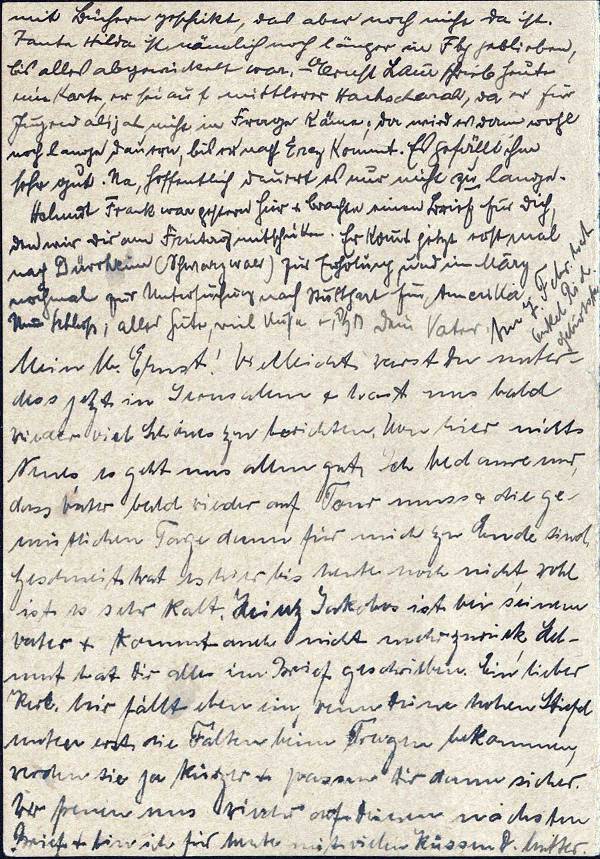 mit Büchern geschickt, das aber noch nicht da ist.
Tante Hilda ist nämlich noch länger in Fbg geblieben,
bis alles abgewickelt war. Ernst schrieb heute
eine Karte, er sei auf mittlerer Hachscharah, da er für
Jugendalijah nicht in Frage käme, da wird es dann wohl
noch lange dauern, bis er nach Erez kommt. Es gefällt ihm
sehr gut. Na, hoffentlich dauert es nur nicht zu lange.
Helmut Frank war gestern hier & brachte einen Brief für Dich,
den wir Dir am Freitag mitschicken. Er kommt jetzt erst mal
nach Dürrheim (Schwarzwald) zur Erholung und im März
nochmal zur Untersuchung nach Stuttgart für Amerika.
Nun Schluss, alles Gute, viel Dein Vater.
Am 7. Febr. hat
Onkel
Geburtstag
Mein lb. Ernst! Vielleicht warst Du unter-
dess jetzt in Jerusalem & hast uns bald
wieder viel Schönes zu berichten. Von hier nichts
Neues es geht uns allen gut. Ich bedaure nur,
dass Vater bald wieder auf Tour muss & die ge-
mütlichen Tage dann für mich zu Ende sind.
Geschneit hat es hier bis heute noch nicht, wohl
ist es sehr kalt. Heinz Jakobs ist bei seinem
Vater & kommt auch nicht mehr zurück. Hel-
mut hat Dir alles im Brief geschrieben. Ein lieber
Kerl. Mir fällt eben ein, wenn Deine hohen Stiefel
erst die Falten beim Tragen bekommen,
werden sie ja kürzer & passen Dir dann sicher.
Wir freuen uns wieder auf Deinen nächsten
Brief & bin ich für heute mit vielen Küssen D. Mutter.